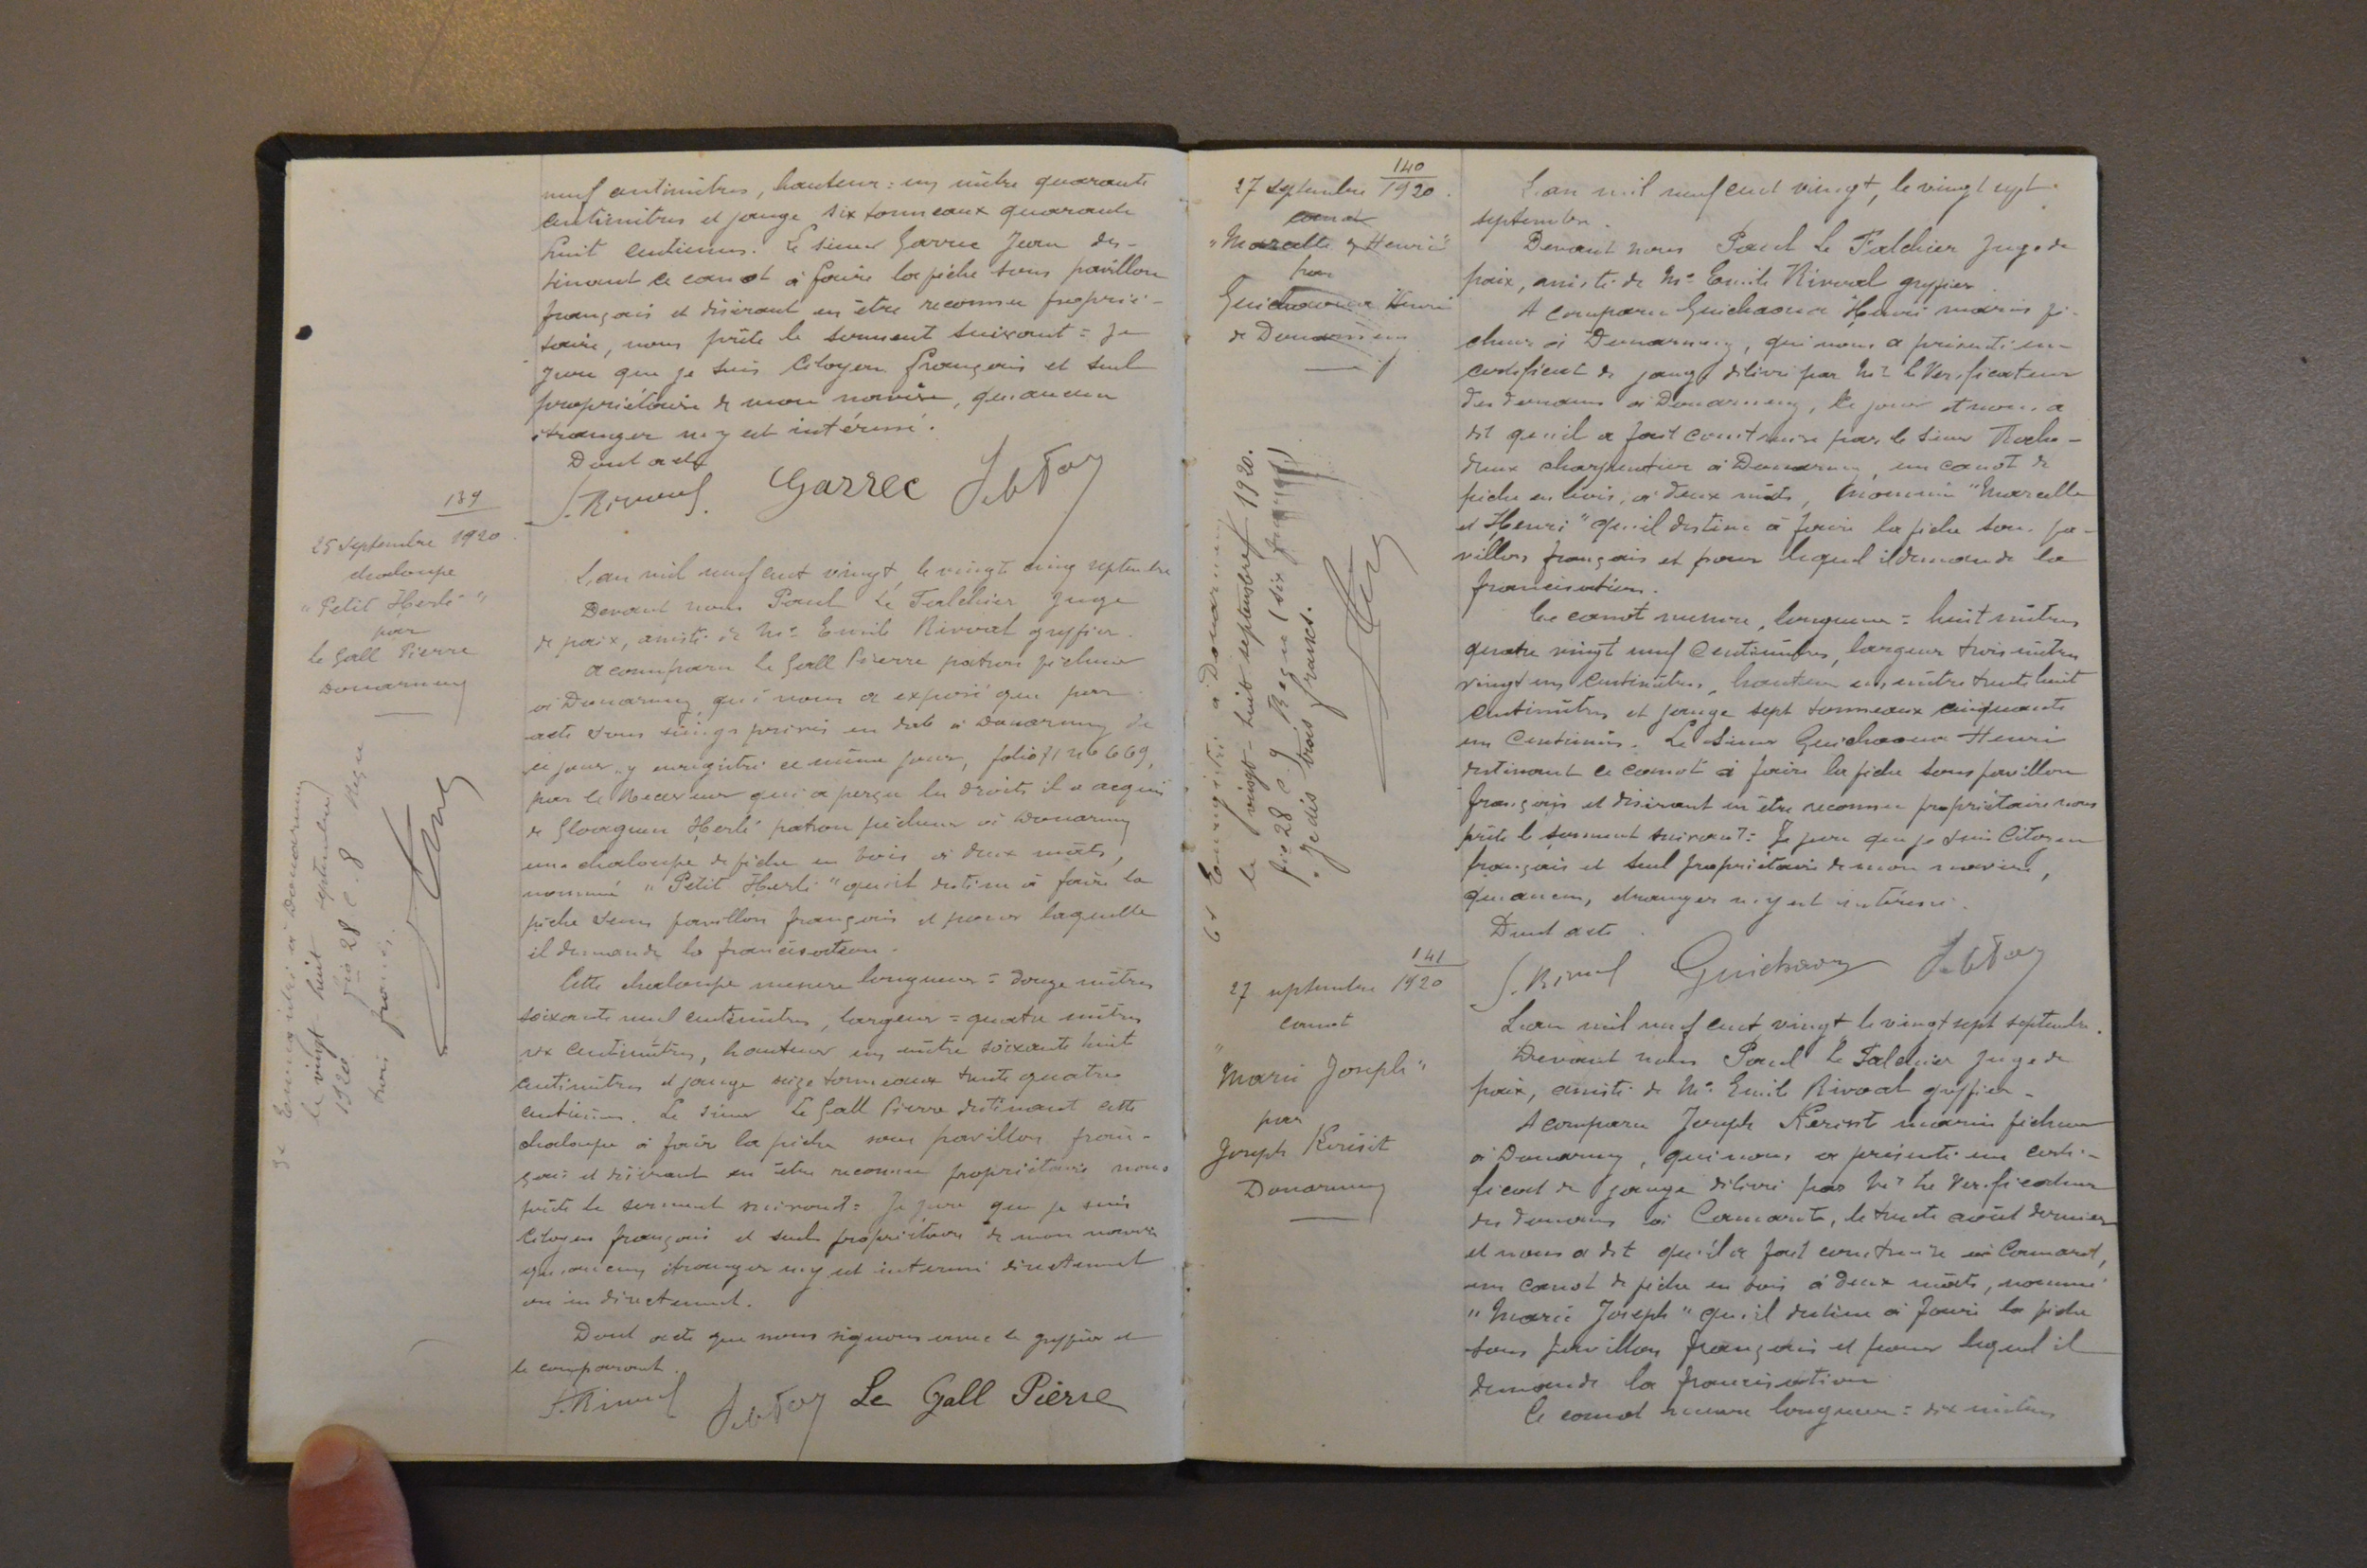 neuf centimètres, hauteur = un mètre quarante
centimètres et jauge six tonneaux quarante
huit centièmes. Le sieur Garrec Jean des-
tinant ce canot à faire la pêche sous pavillon
français et désirant en être reconnu proprié-
taire, nous prête le serment suivant = Je
jure que je suis citoyen français et seul
propriétaire de mon navire, qu'aucun
étranger n'y est intéressé.
Dont acte
Garrec
139
25 Septembre 1920
chaloupe
"Petit Herlé"
par
le Gall Pierre
Douarnenez
L'an mil neuf cent vingt, le vingt cinq septembre
Devant nous Paul Le Falchier Juge
de paix, assisté de Me Emile Rivoal greffier.
a comparu Le Gall Pierre patron pêcheur
à Douarnenez, qui nous a exposé que par
acte sous seings privés en date à Douarnenez de
ce jour, y enregistré ce même jour, folio 71 No 669,
par le Receveur qui a perçu les droits il a acquis
de Gloaguen Herlé patron pêcheur à Douarnenez
une chaloupe de pêche en bois à deux mâts,
nommé "Petit Herlé" qu'il destine à faire la
pêche sous pavillon français et pour laquelle
il demande la francisation.
Cette chaloupe mesure longueur = douze mètres
soixante neuf centimètres, largeur = quatre mètres
six centimètres, hauteur un mètre soixante huit
centimètres et jauge seize tonneaux trente quatre
centièmes. Le sieur Le Gall Pierre destinant cette
chaloupe à faire la pêche sous pavillon fran-
çais et désirant en être reconnu propriétaire nous
prête le serment suivant = Je jure que je suis
citoyen français et seul propriétaire de mon navire
qu'aucun étranger n'y est intéressé directement
ou indirectement.
Dont acte que nous signons avec le greffier et
le comparant.
Le Gall Pierre
Enregistré à Douarnenez
le vingt-huit septembre
1920 fio 28 c. 8 Reçu
trois francs.
140
27 septembre 1920.
canot
"Marcelle et Henri"
par
Guichaoua Henri
de Douarnenez
Enregistré à Douarnenez
le vingt-huit septembre 1920.
fio 28 c. 9 Reçu (six francs)
Je dis trois francs.
L'an mil neuf cent vingt, le vingt sept
septembre.
Devant nous Paul Le Falchier Juge de
paix, assisté de Me Emile Rivoal greffier
A comparu Guichaoua Henri marin pê-
cheur à Douarnenez, qui nous a présenté un
certificat de jauge délivré par Mr le Vérificateur
des douanes à Douarnenez, ce jour et nous a
dit qu'il a fait construire par le sieur
charpentier à Douarnenez, un canot de
pêche en bois, à deux mâts, nommé "Marcelle
et Henri" qu'il destine à faire la pêche sous pa-
villon français et pour lequel il demande la
francisation.
Ce canot mesure, longueur = huit mètres
quatre vingt neuf centimètres, largeur trois mètres
vingt un centimètres, hauteur un mètre trente huit
centimètres et jauge sept tonneaux cinquante
un centièmes. Le sieur Guichaoua Henri
destinant ce canot à faire la pêche sous pavillon
français et désirant en être reconnu propriétaire nous
prête le serment suivant = Je jure que je suis citoyen
français et seul propriétaire de mon navire,
qu'aucun, étranger n'y est intéressé.
Dont acte.
Guichaoua
141
27 septembre 1920
canot
"Marie Joseph"
par
Joseph Kerisit
Douarnenez
L'an mil neuf cent vingt le vingt sept septembre.
Devant nous Paul Le Falchier Juge de
paix, assisté de Me Emile Rivoal greffier -
A comparu Joseph Kerisit marin pêcheur
à Douarnenez, qui nous a présenté un certi-
ficat de jauge délivré par Mr le Vérificateur
des douanes à Camaret, le trente août dernier
et nous a dit qu'il a fait construire à Camaret,
un canot de pêche en bois à deux mâts, nommé
"Marie Joseph" qu'il destine à faire la pêche
sous pavillon français et pour lequel il
demande la francisation
Ce canot mesure longueur = dix mètres